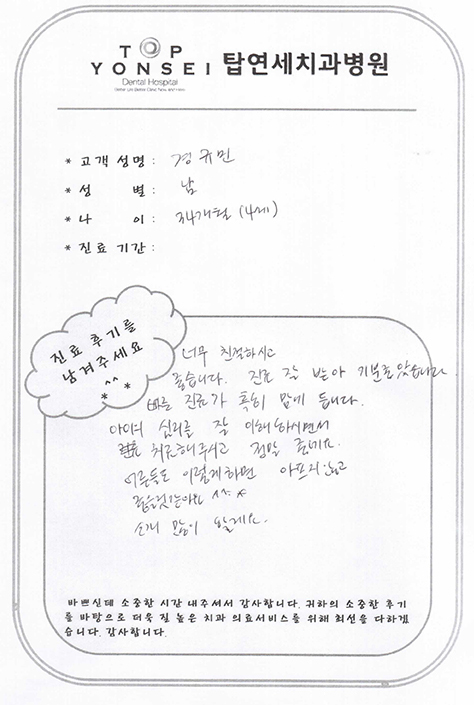 TOP
YONSEI 탑연세치과병원
Dental Hospital
* 고객 성명 : 경규민
* 성 별 : 남
* 나 이 : 34개월 (4세)
* 진료 기간 :
진료 후기를
남겨주세요
^^
* *
너무 친절하시고
좋습니다. 진료 잘 받아 기분좋았습니다.
바른 진료가 특히 맘에 듭니다.
아이의 심리를 잘 이해하시면서
치료해주시고 정말 좋네요.
어른들도 이렇게하면 아프지않고
좋을것같아요 ^^ *
소개 많이 할게요.
바쁘신데 소중한 시간 내주셔서 감사합니다. 귀하의 소중한 후기
를 바탕으로 더욱 질 높은 치과 의료서비스를 위해 최선을 다하겠
습니다. 감사합니다.